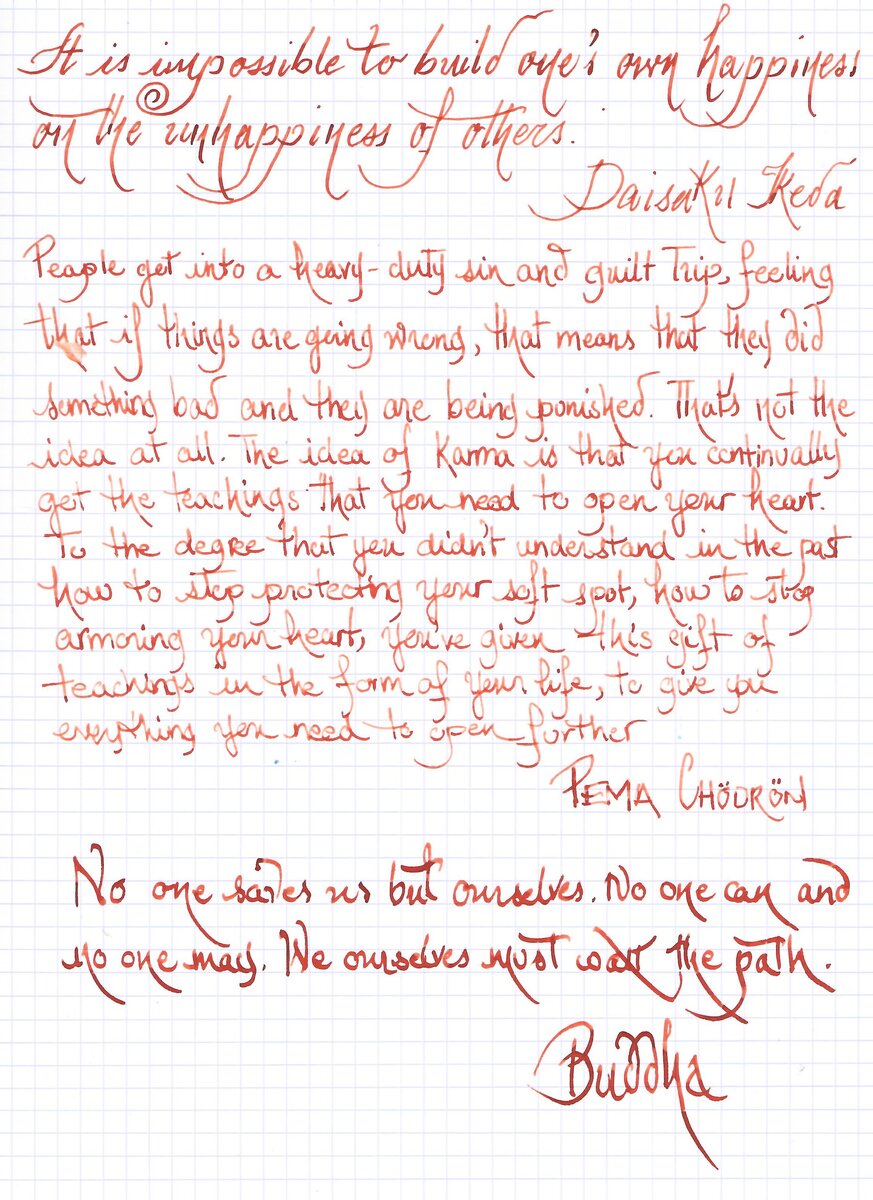 It is impossible to build one's own happiness
on the unhappiness of others.
Daisaku Ikeda
People get into a heavy-duty sin and guilt Trip, feeling
that if things are going wrong, that means that they did
something bad and they are being punished. That's not the
idea at all. The idea of Karma is that you continually
get the teachings That you need to open your heart.
To the degree that you didn't understand in the past
how to stop protecting your soft spot, how to stop
armoring your heart, you've given this gift of
teachings in the form of your life, to give you
everything you need to open further
PEMA CHÖDRÖN
No one saves us but ourselves. No one can and
no one may. We ourselves must walk the path.
Buddha